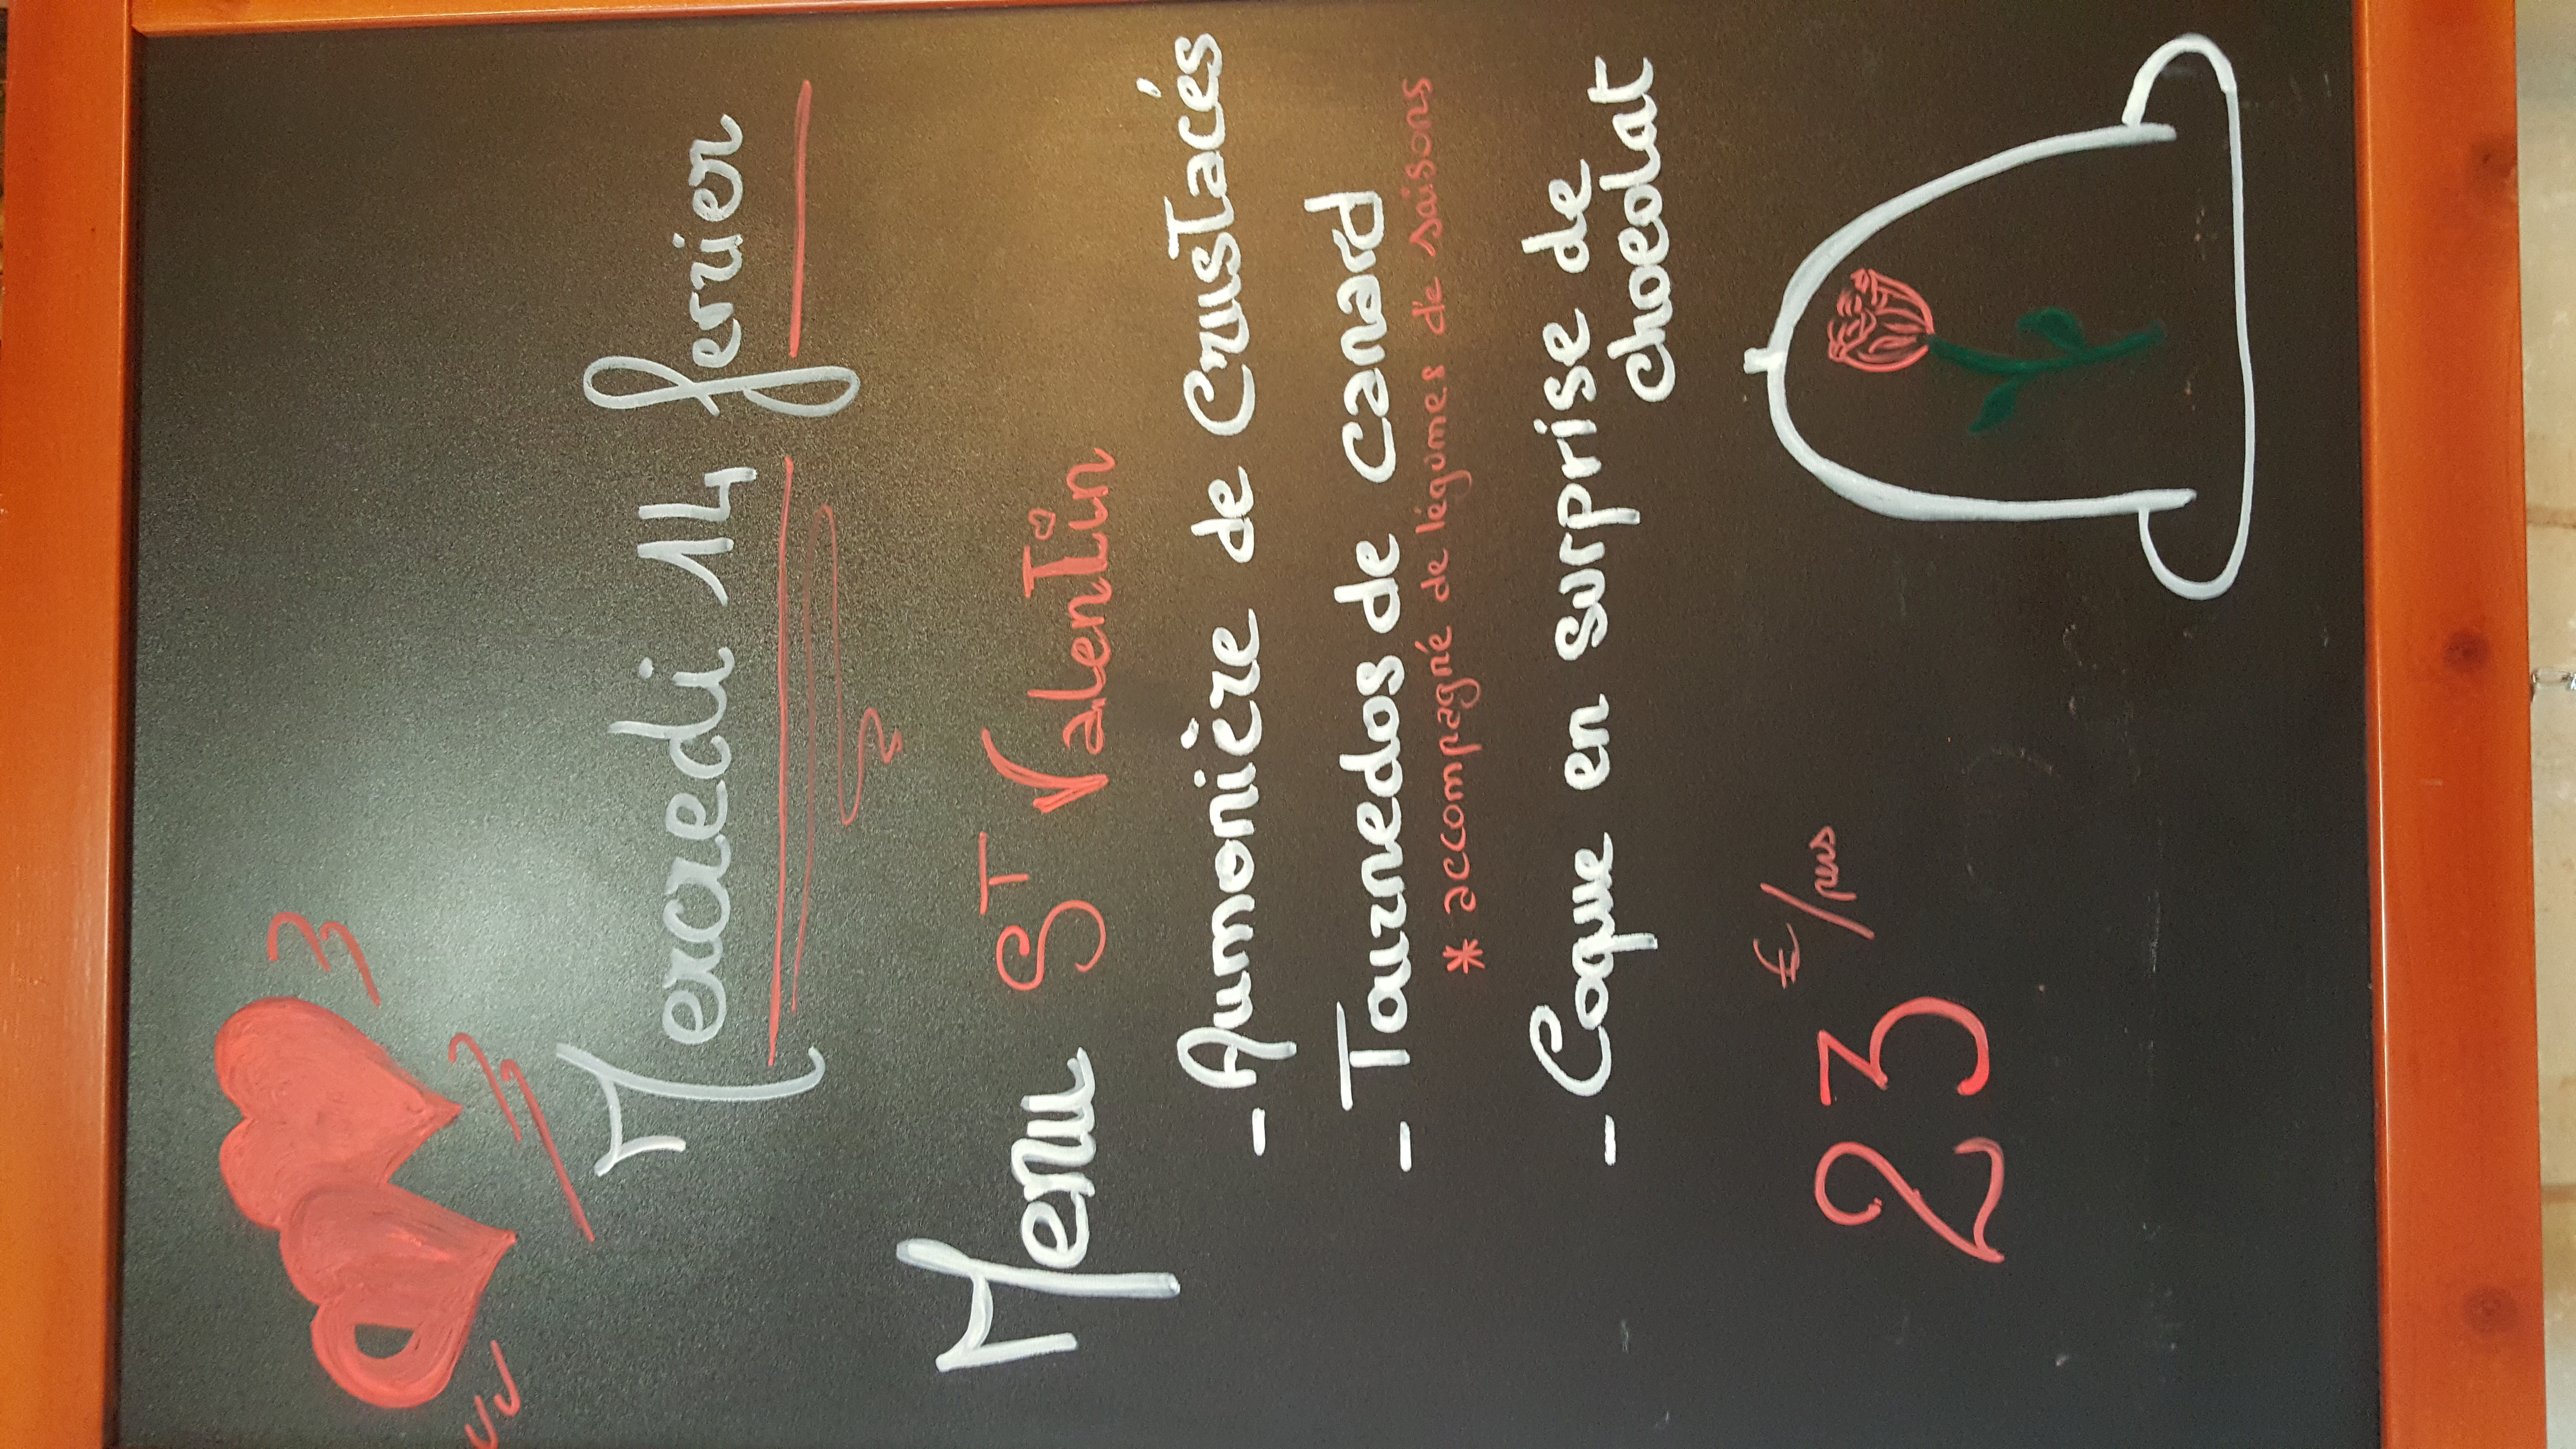 Mercredi 14 ferrier
Menu ST Valentin
- Aumonière de Crustacés
- Tournedos de canard
* accompagné de légumes de saisons
- Coque en surprise de
chocolat
23 €/pers